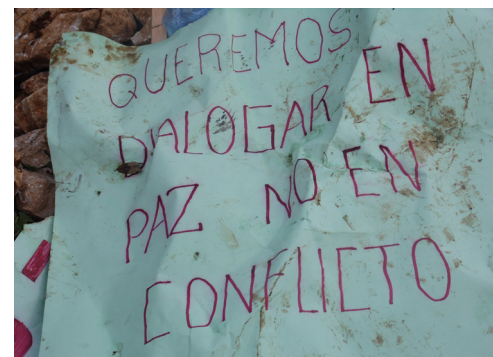 QUEREMOS
DIALOGAR EN
PAZ NO EN
CONFLICTO